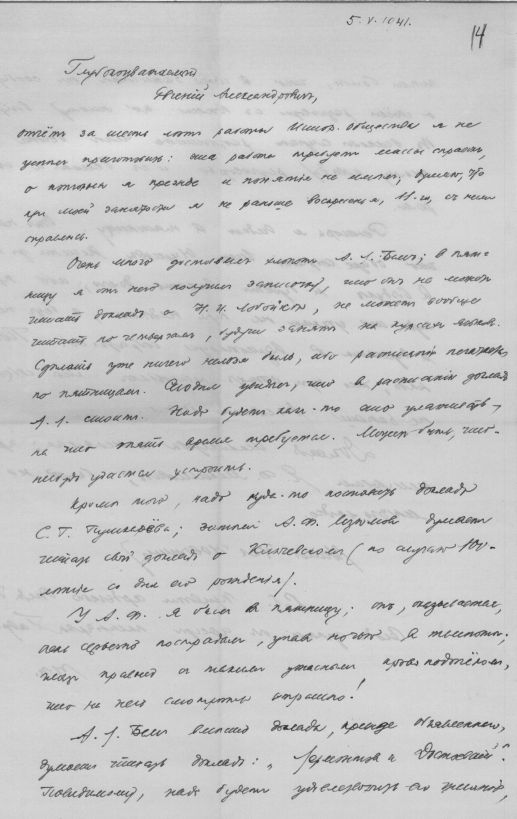 5.V.1941.
14
Глубокоуважаемый
Евгений Александрович,
отчёт за шесть лет работы Истор. общества я не
успел приготовить: эта работа требует массы справок,
о которых я прежде и понятия не имел; думаю, что
при моей занятости я не раньше воскресенья, 11-го, с ним
справлюсь.
Очень много доставил хлопот А. Л. Бем; в пят-
ницу я от него получил записку, что он не может
читать доклад о Н. И. , не может вообще
читать по четвергам, будучи занят на курсах языка.
Сделать уже ничего нельзя было, ибо расписания печатались
по пятницам. Сегодня увидел, что в расписании доклад
А. Л. стоит. Надо будет как-то это улаживать,
на что опять время требуется. Может быть, что-
нибудь удастся устроить.
Кроме того, надо куда-то поставить доклад
С. Г. ; затем А. Ф. Изюмов думает
читать свой доклад о Ключевском (по случаю 100-
летия со дня его рождения).
У А. Ф. я был в пятницу; он, оказывается,
очень серьезно пострадал, упав ночью в темноте;
лежит с таким ужасным кровоподтёком,
что на него смотреть страшно!
А. Л. Бем вместо доклада, прежде объявленного,
думает читать доклад: „Лермонтов и Достоевский“.
Повидимому, надо будет удовлетворить его желание,